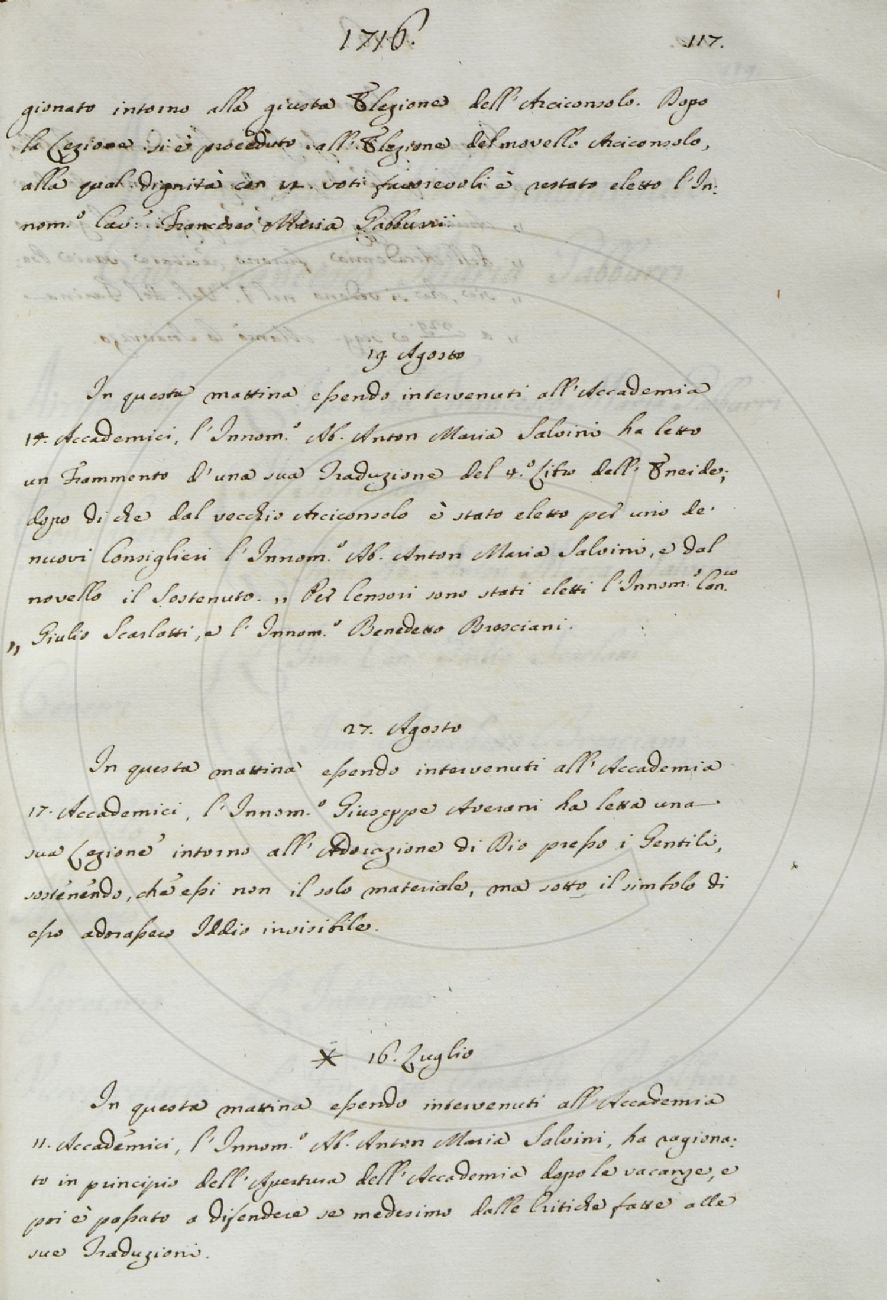 1716.
117.
gionato intorno alla giusta Elezione dell'Arciconsolo. Dopo
la Lezione si è proceduto all'Elezione del novello Arciconsolo,
alla qual dignità con 12. voti favorevoli è restato eletto l'In-
nom.º Cav.e Francesco Maria Gabburri
19. Agosto
In questa mattina essendo intervenuti all'Accademia
14. Accademici, l'Innom.º Ab. Anton Maria Salvini ha letto
un Frammento d'una sua Traduzione del 4.º Libro dell'Eneide;
dopo di che dal vecchio Arciconsolo è stato eletto per uno de'
nuovi Consiglieri l'Innom.º Ab. Anton Maria Salvini, e dal
novello il Sostenuto. „ Per Censori sono stati eletti l'Innom.º Can.co
„ Giulio Scarlatti, e l'Innom.º Benedetto Bresciani.
27. Agosto
In questa mattina essendo intervenuti all'Accademia
17. Accademici, l'Innom.º Giuseppe Averani ha letta una
sua Lezione intorno all'Adorazione di Dio presso i Gentili,
sostenendo, che essi non il solo materiale, ma sotto il simbolo di
esso adorassero Iddio invisibile.
* 16. Luglio
In questa mattina essendo intervenuti all'Accademia
11. Accademici, l'Innom.º Ab. Anton Maria Salvini, ha ragiona-
to in principio dell'Apertura dell'Accademia dopo le vacanze, e
poi è passato a difendere se medesimo dalle Critiche fatte alle
sue Traduzioni.